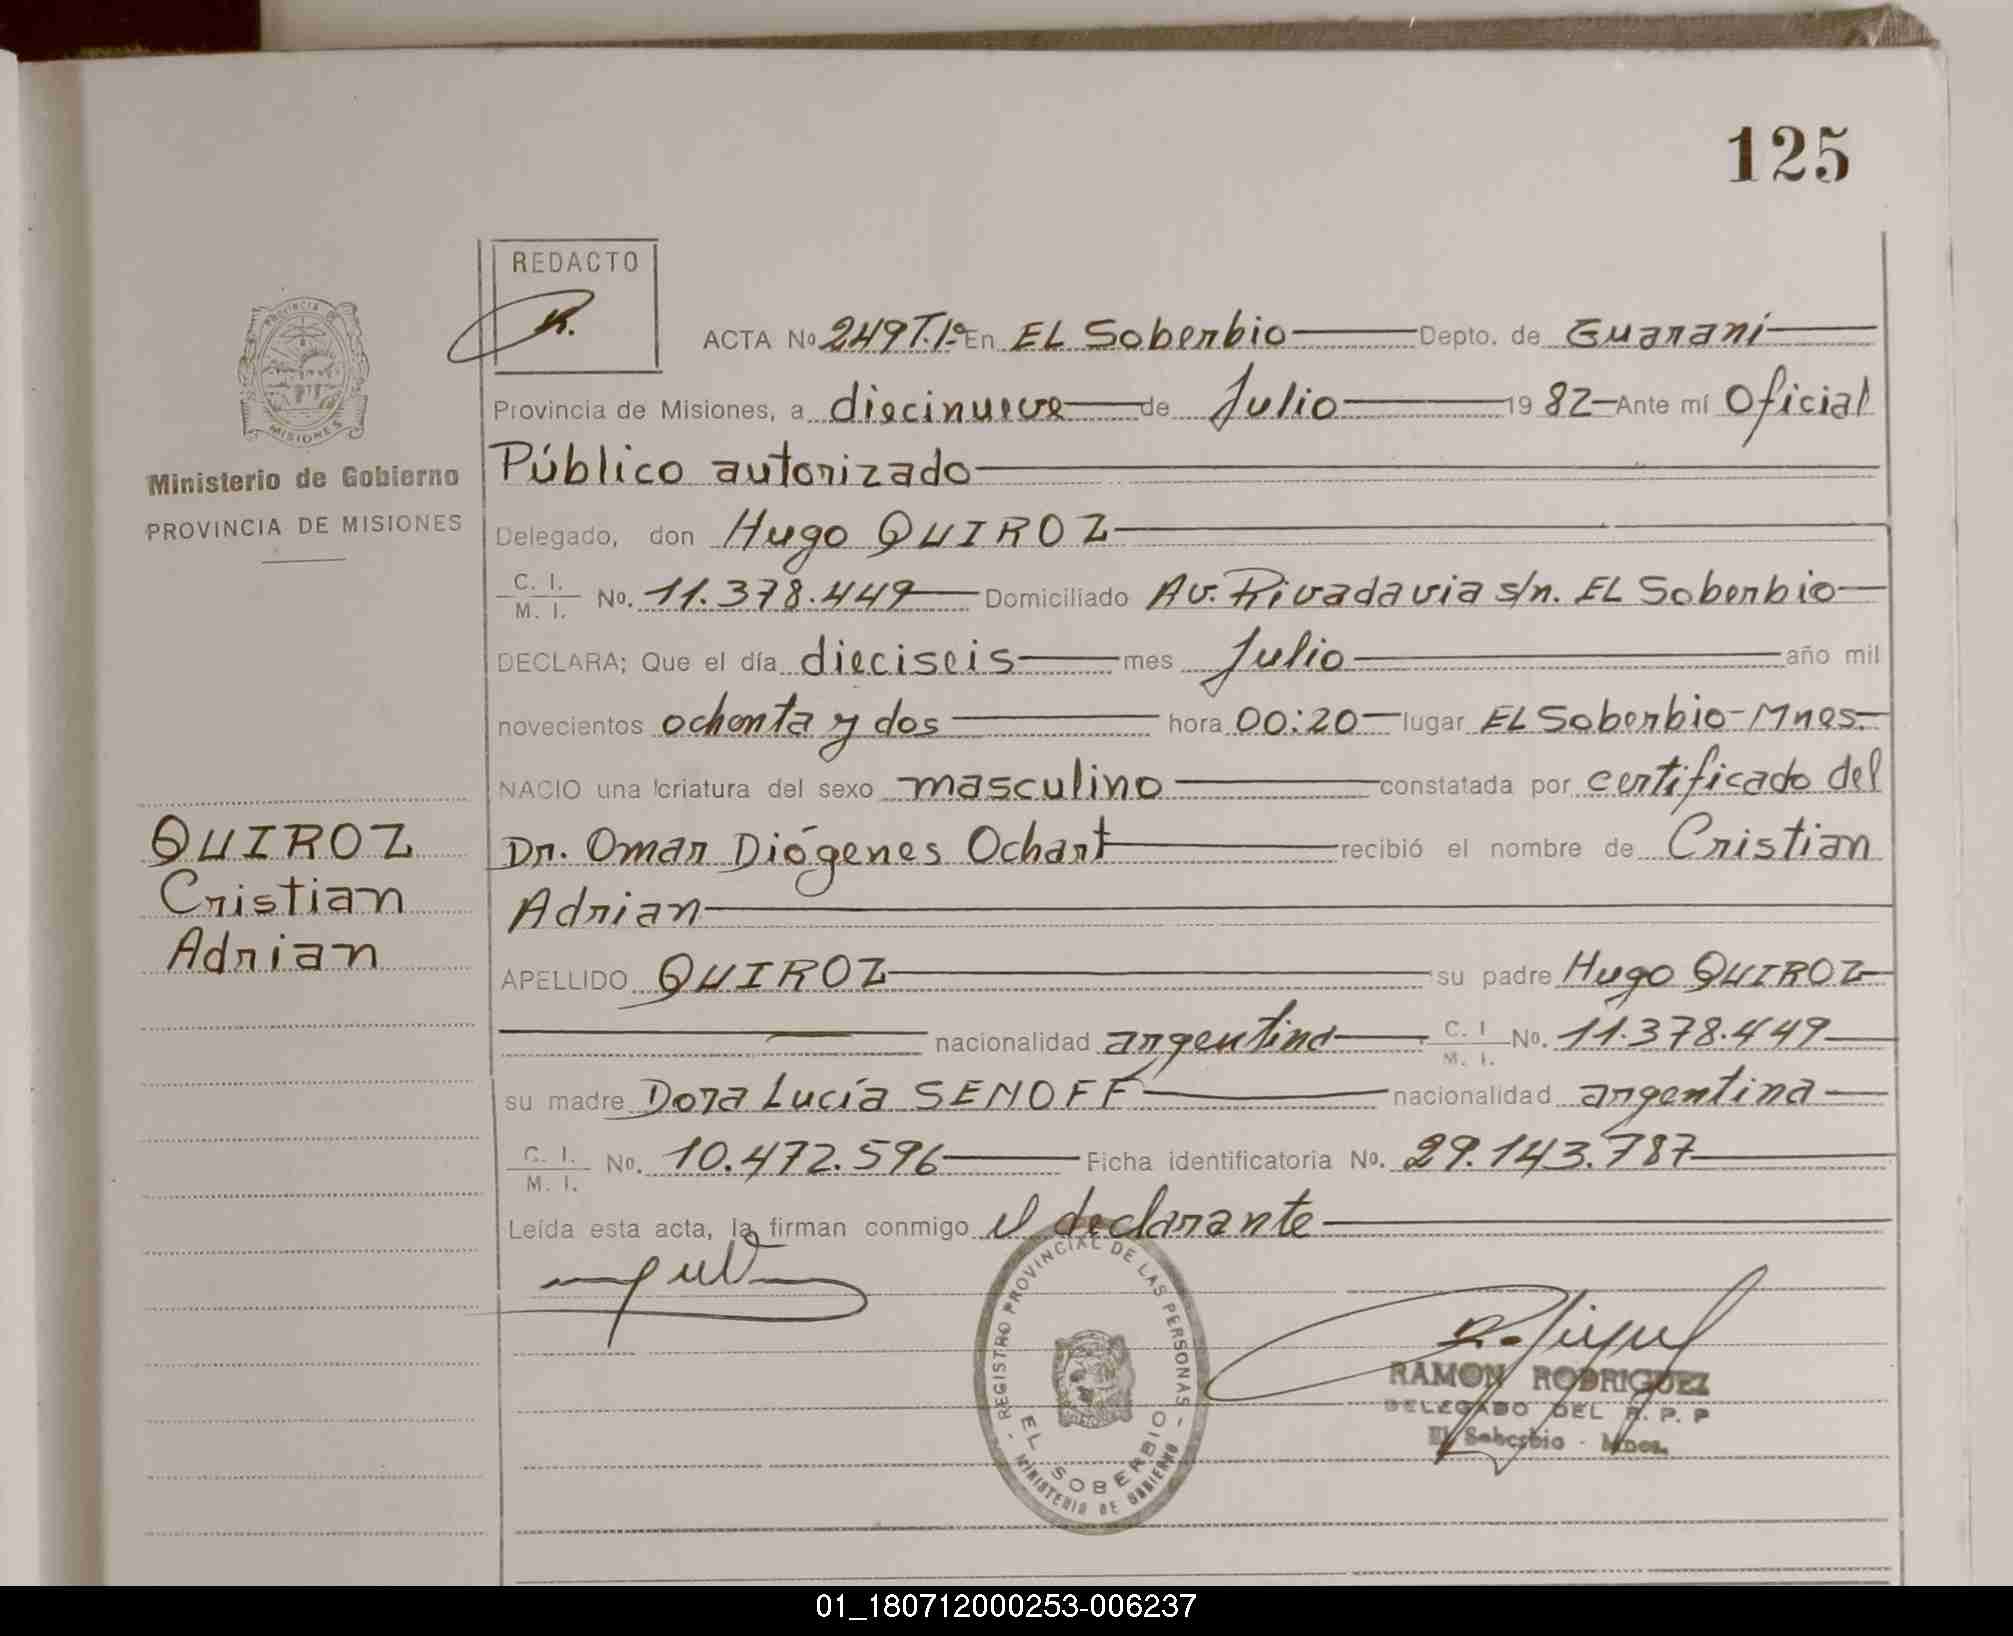 125
REDACTO
R.
PROVINCIA DE
MISIONES
Ministerio de Gobierno
PROVINCIA DE MISIONES
ACTA No 249 T.1º En EL Soberbio Depto. de Guaraní
Provincia de Misiones, a diecinueve de Julio 19 82 Ante mí Oficial
Público autorizado
Delegado, don Hugo QUIROZ
C. I.
M. I.
No. 11.378.449 Domiciliado Av. Rivadavia s/n. EL Soberbio
DECLARA; Que el día dieciseis mes Julio año mil
novecientos ochenta y dos hora 00:20 lugar EL Soberbio-Mnes.
NACIO una criatura del sexo masculino constatada por certificado del
Dr. Omar Diógenes Ochart recibió el nombre de Cristian
Adrian
APELLIDO QUIROZ su padre Hugo QUIROZ
nacionalidad argentina C. I. M. I. No. 11.378.449
su madre Dora Lucía SENOFF nacionalidad argentina
C. I.
M. I.
No. 10.472.596 Ficha identificatoria No. 29.143.787
Leída esta acta, la firman conmigo el declarante
QUIROZ
Cristian
Adrian
REGISTRO PROVINCIAL DE LAS PERSONAS
EL SOBERBIO
MINISTERIO DE GOBIERNO
RAMON RODRIGUEZ
DELEGADO DEL R. P. P
El Soberbio - Mnes.
01_180712000253-006237